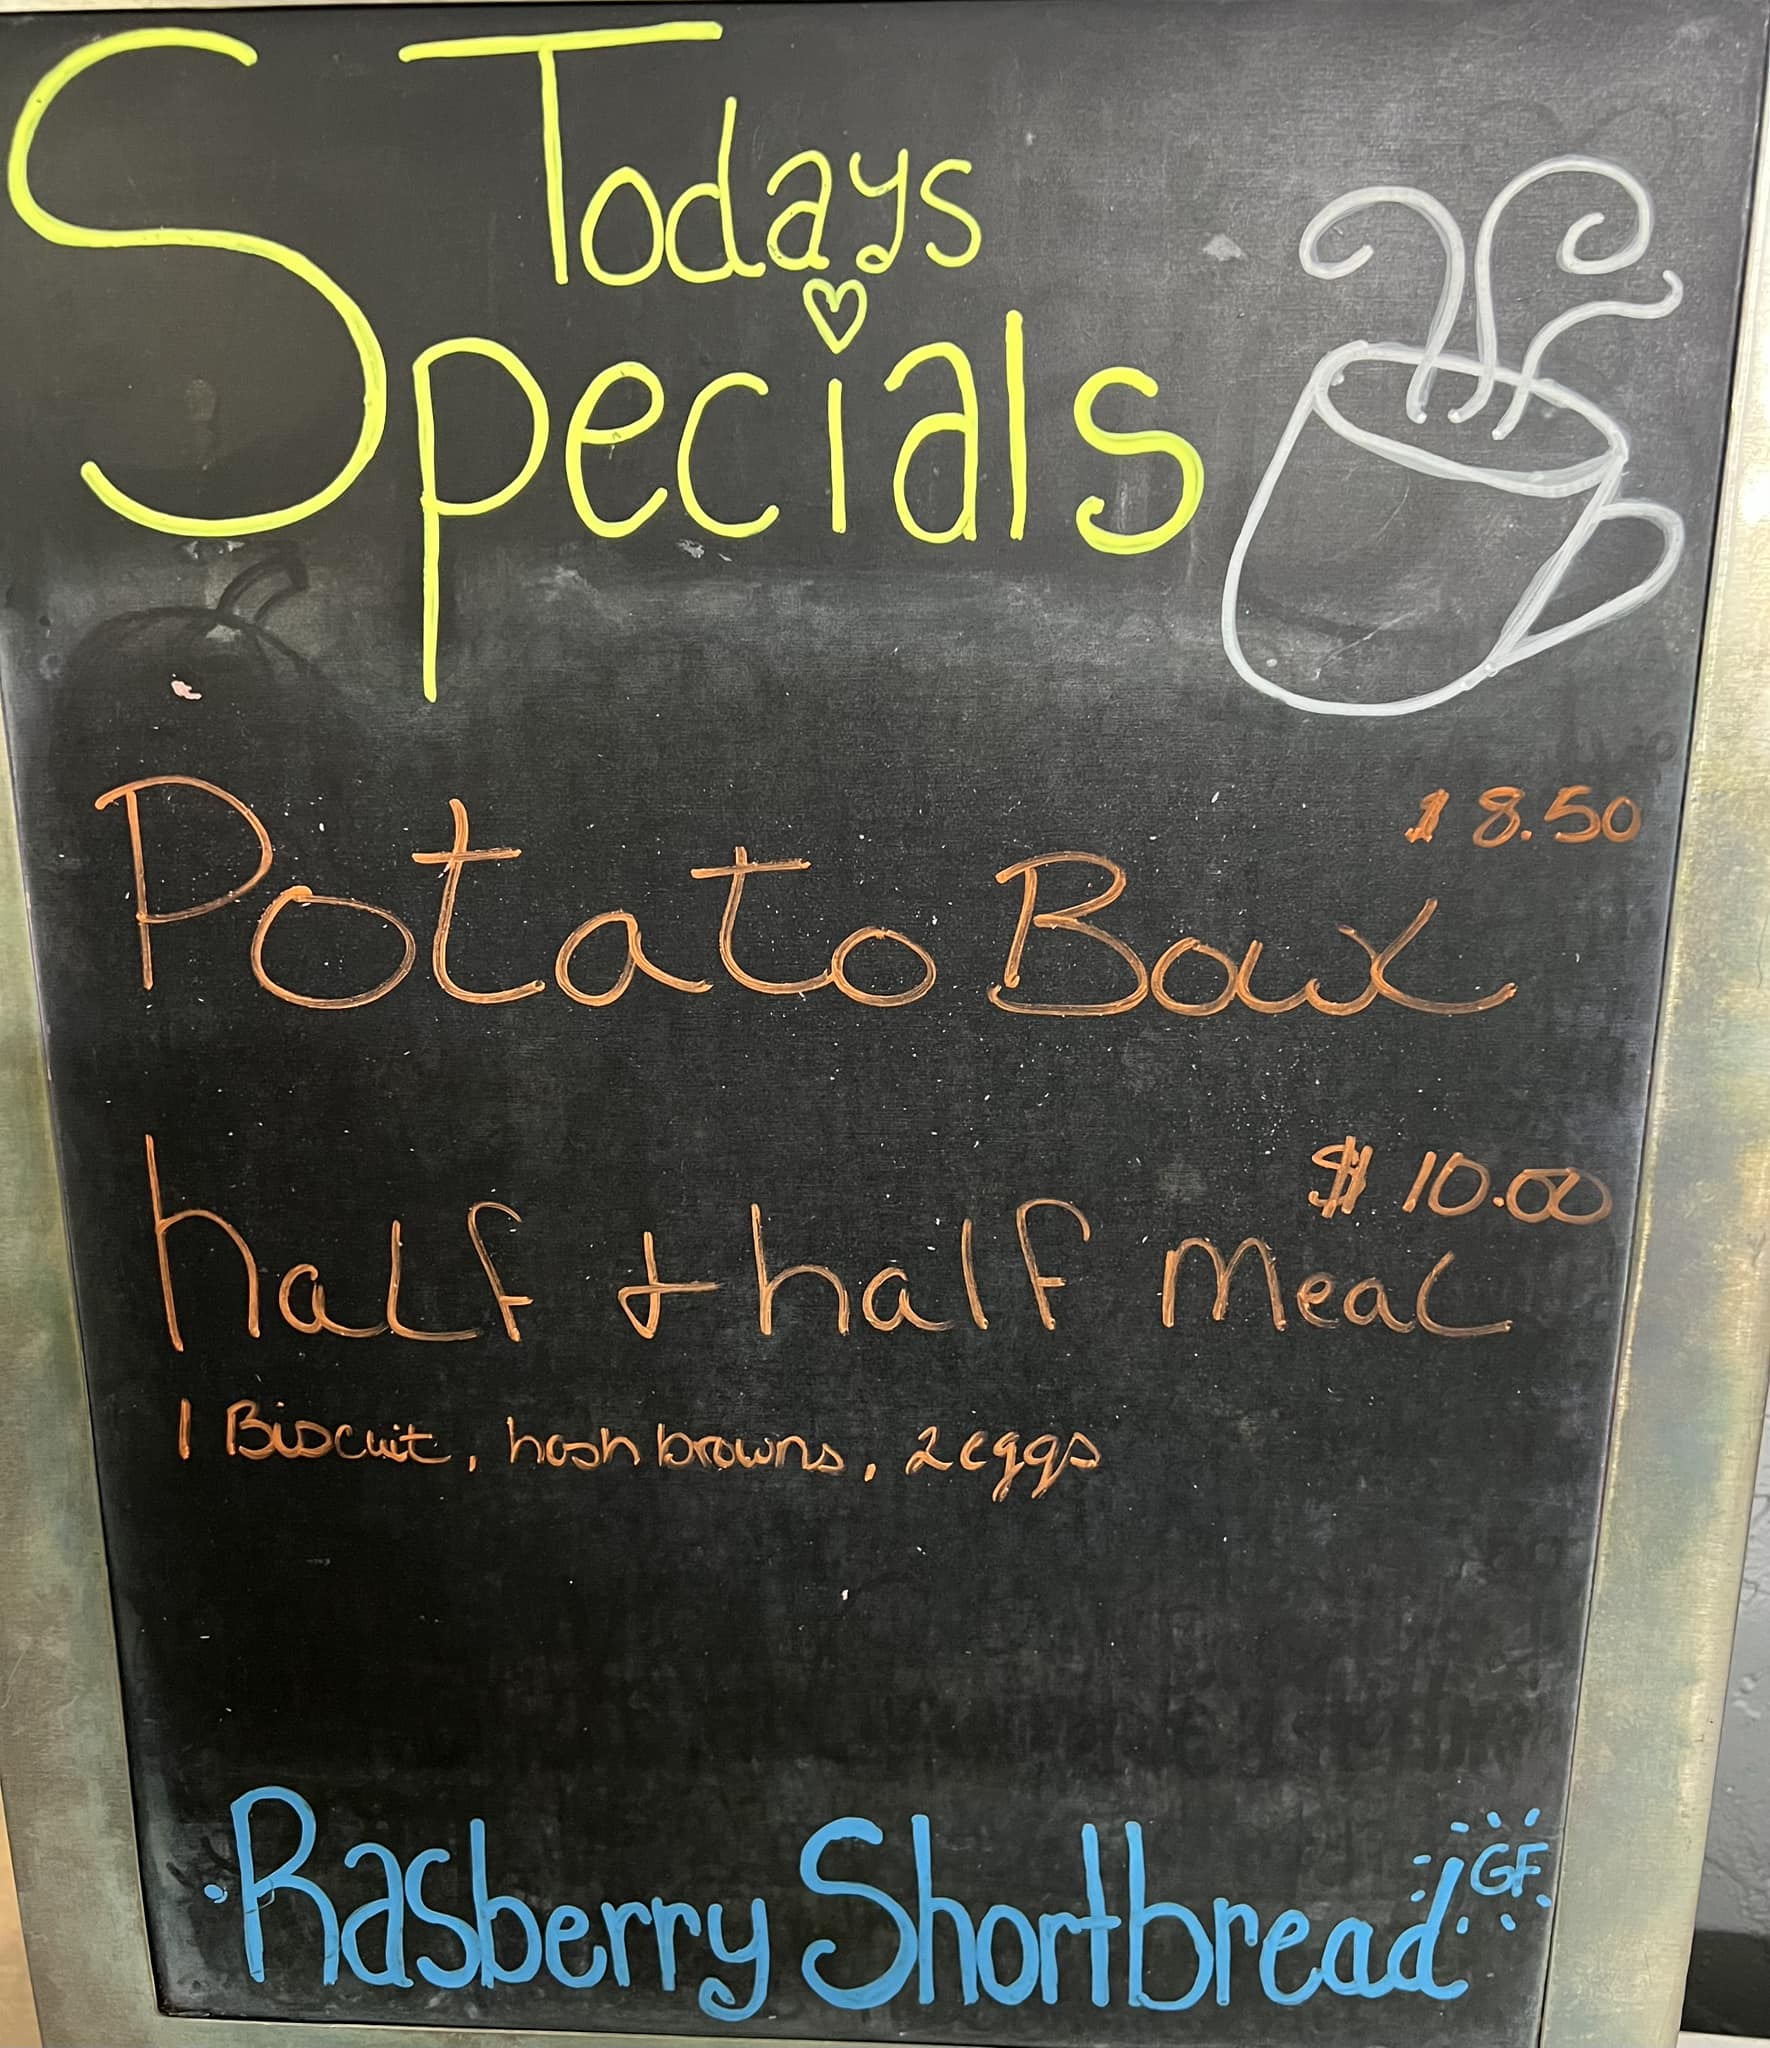 Todays
Specials
$ 8.50
Potato Bowl
$ 10.00
half + half meal
1 Biscuit, hash browns, 2 eggs
GF
Rasberry Shortbread